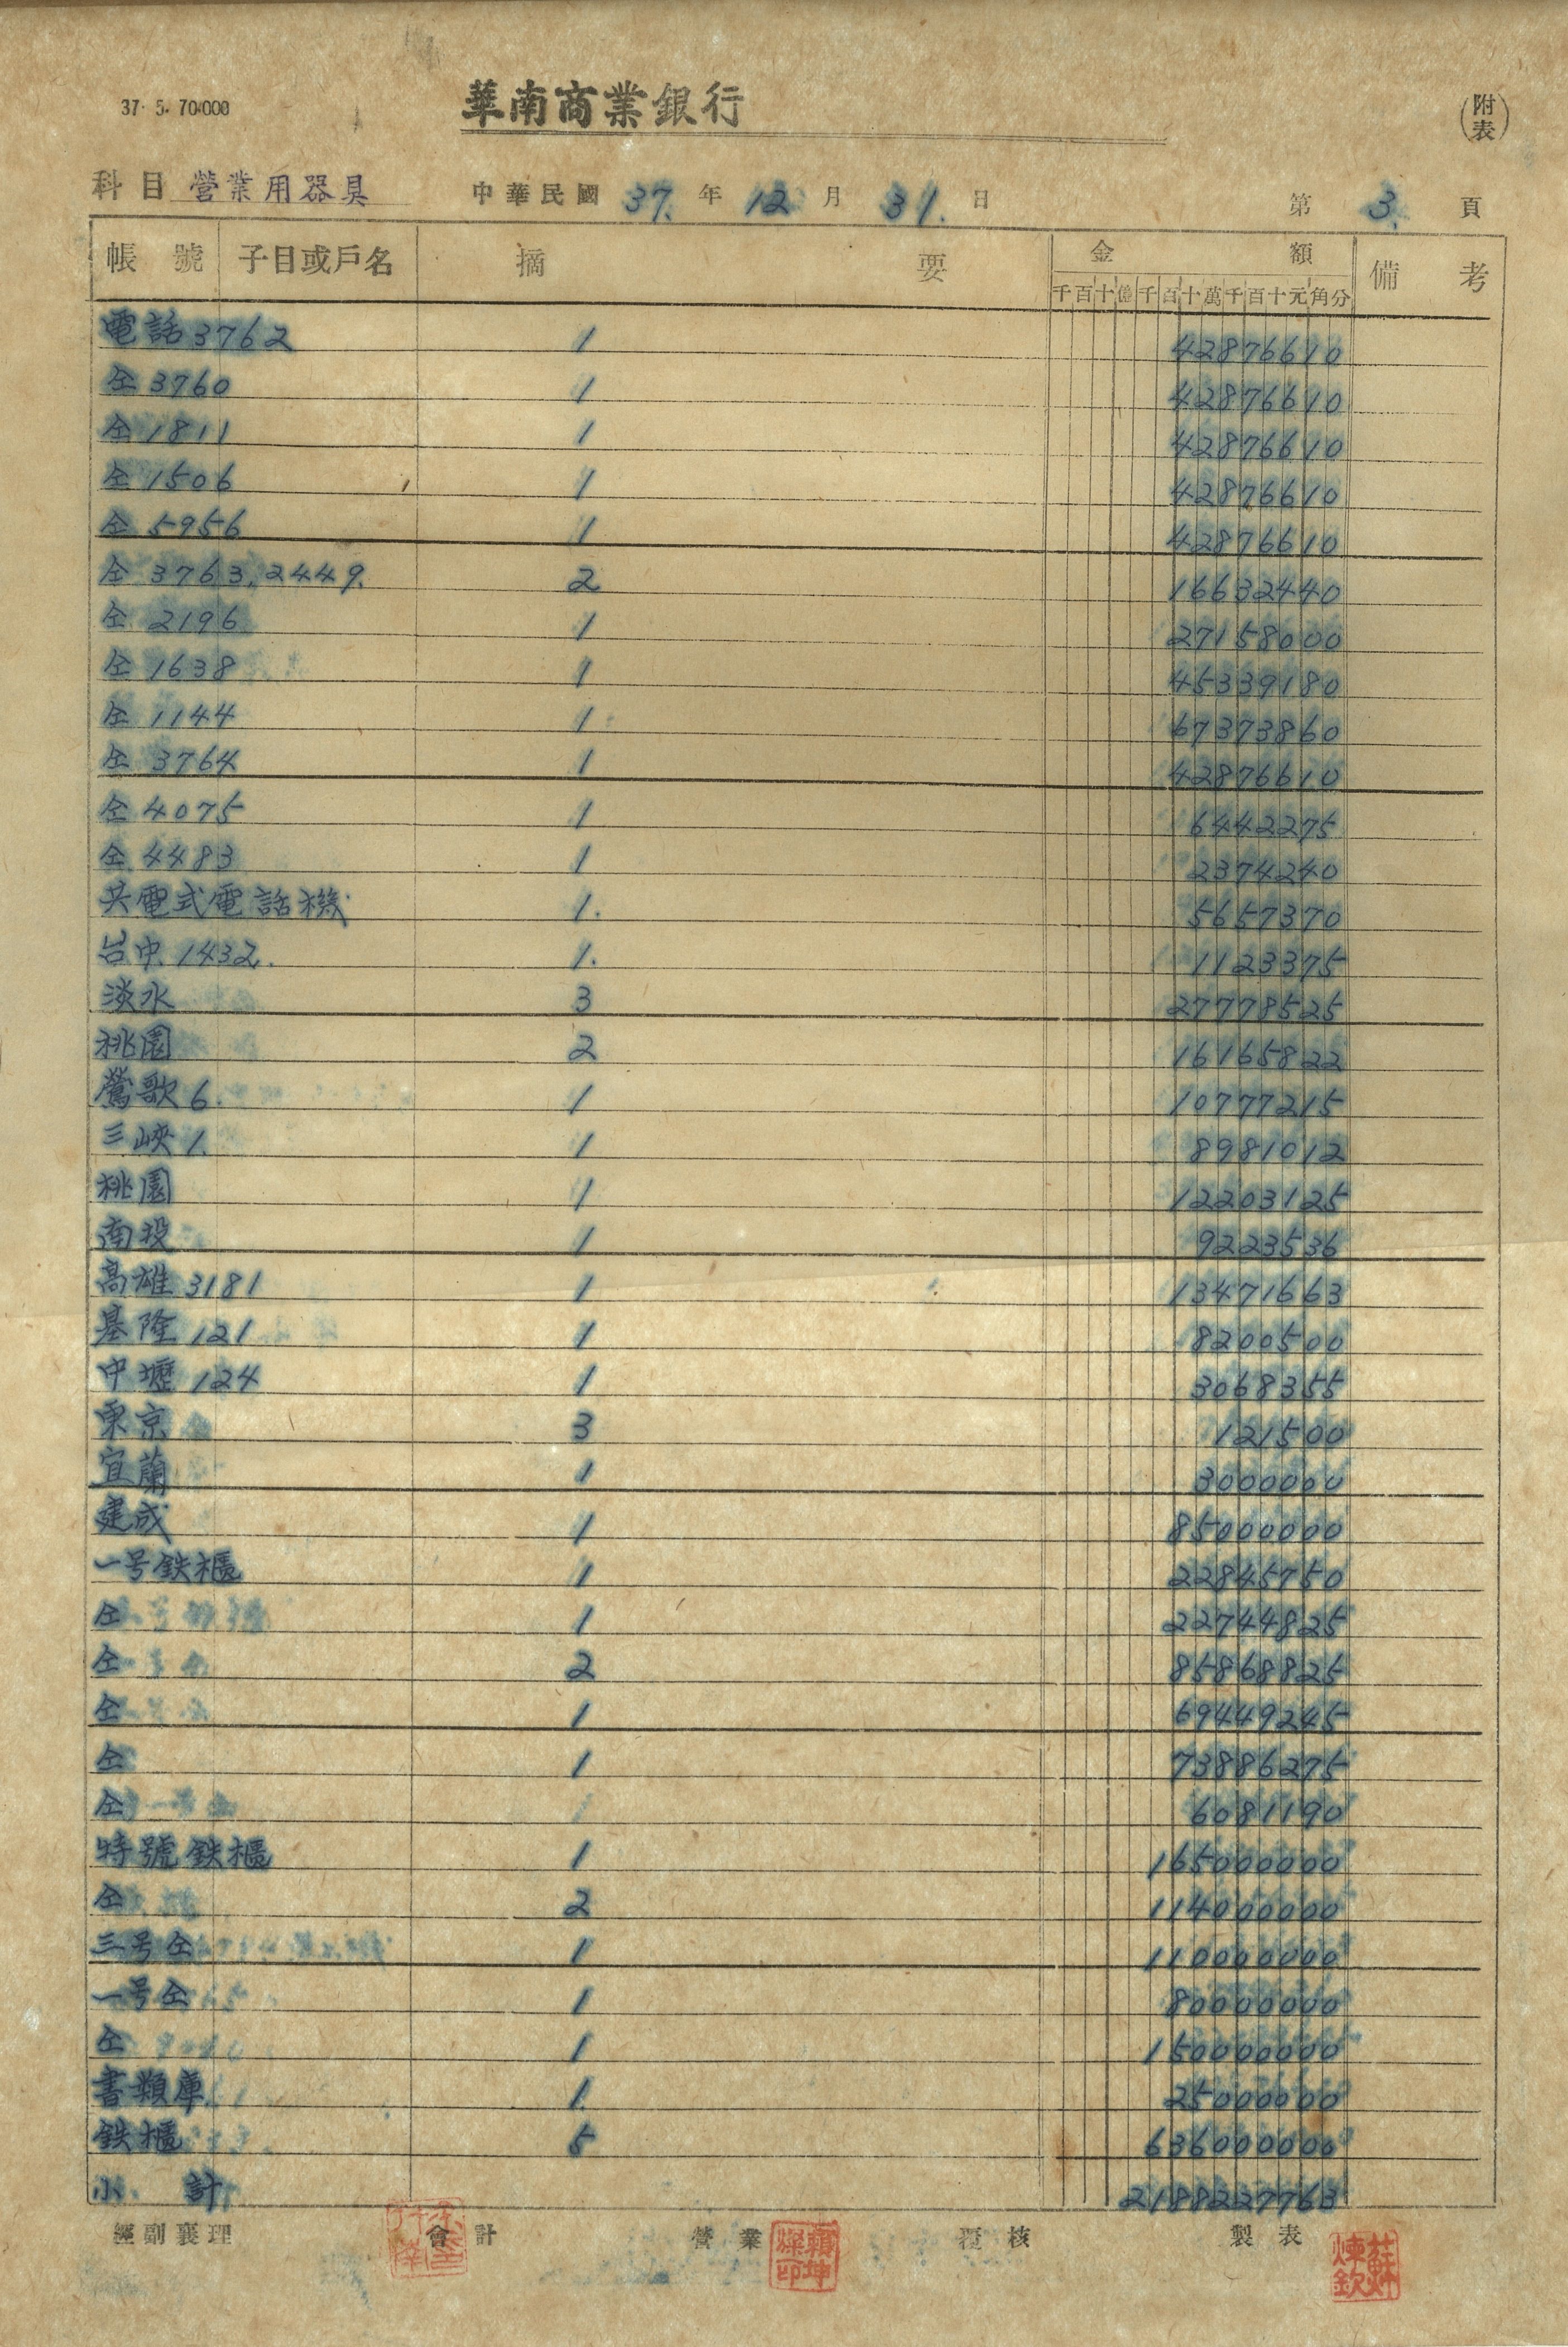 37. 5. 70.000
華南商業銀行
(附表)
科目 營業用器具 中華民國 37. 年 12 月 31. 日 第 3. 頁
帳號 子目或戶名 摘要 金額 備考
千百十億千百十萬千百十元角分
電話 3762 1 42876610
仝 3760 1 42876610
仝 1811 1 42876610
仝 1506 1 42876610
仝 5956 1 42876610
仝 3763, 2449. 2 16632440
仝 2196 1 27158000
仝 1638 1 45339180
仝 1144 1 67373860
仝 3764 1 42876610
仝 4075 1 6442275
仝 4483 1 2374240
共電式電話機 1. 5657370
台中 1432. 1. 1123375
淡水 3 27778525
桃園 2 16165822
鶯歌 6. 1 10777215
三峽 1. 1 8981012
桃園 1 12203125
南投 1 9223536
高雄 3181 1 13471663
基隆 121 1 8200500
中壢 124 1 3068355
東京 3 121500
宜蘭 1 3000000
建成 1 85000000
一号鉄櫃 1 22845750
仝 1 22744825
仝 2 85868825
仝 1 69449245
仝 1 73886275
仝 6081190
特號鉄櫃 1 165000000
仝 2 114000000
三号仝 1 110000000
一号仝 1 80000000
仝 1 150000000
書類庫 1. 25000000
鉄櫃 5 636000000
小計 2188227763
經副襄理 會計 營業 覆核 製表
賴坤燦印
蘇煉欽